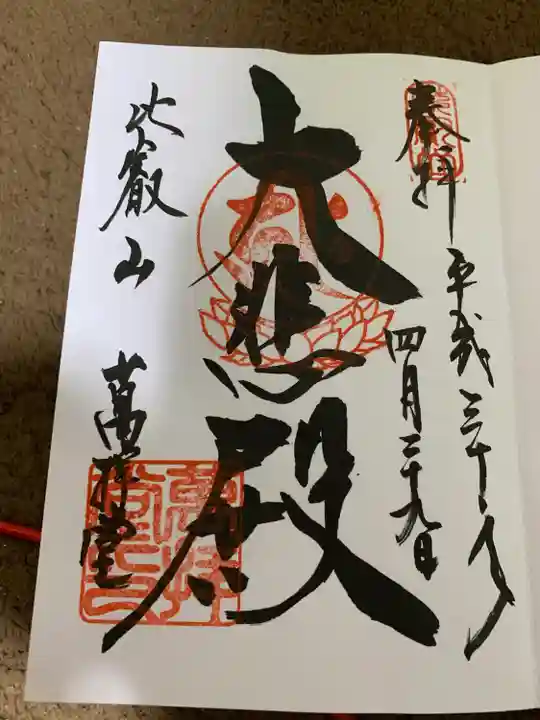 奉拝
平成三十年
四月二十九日
大悲殿
比叡山
萬拝堂